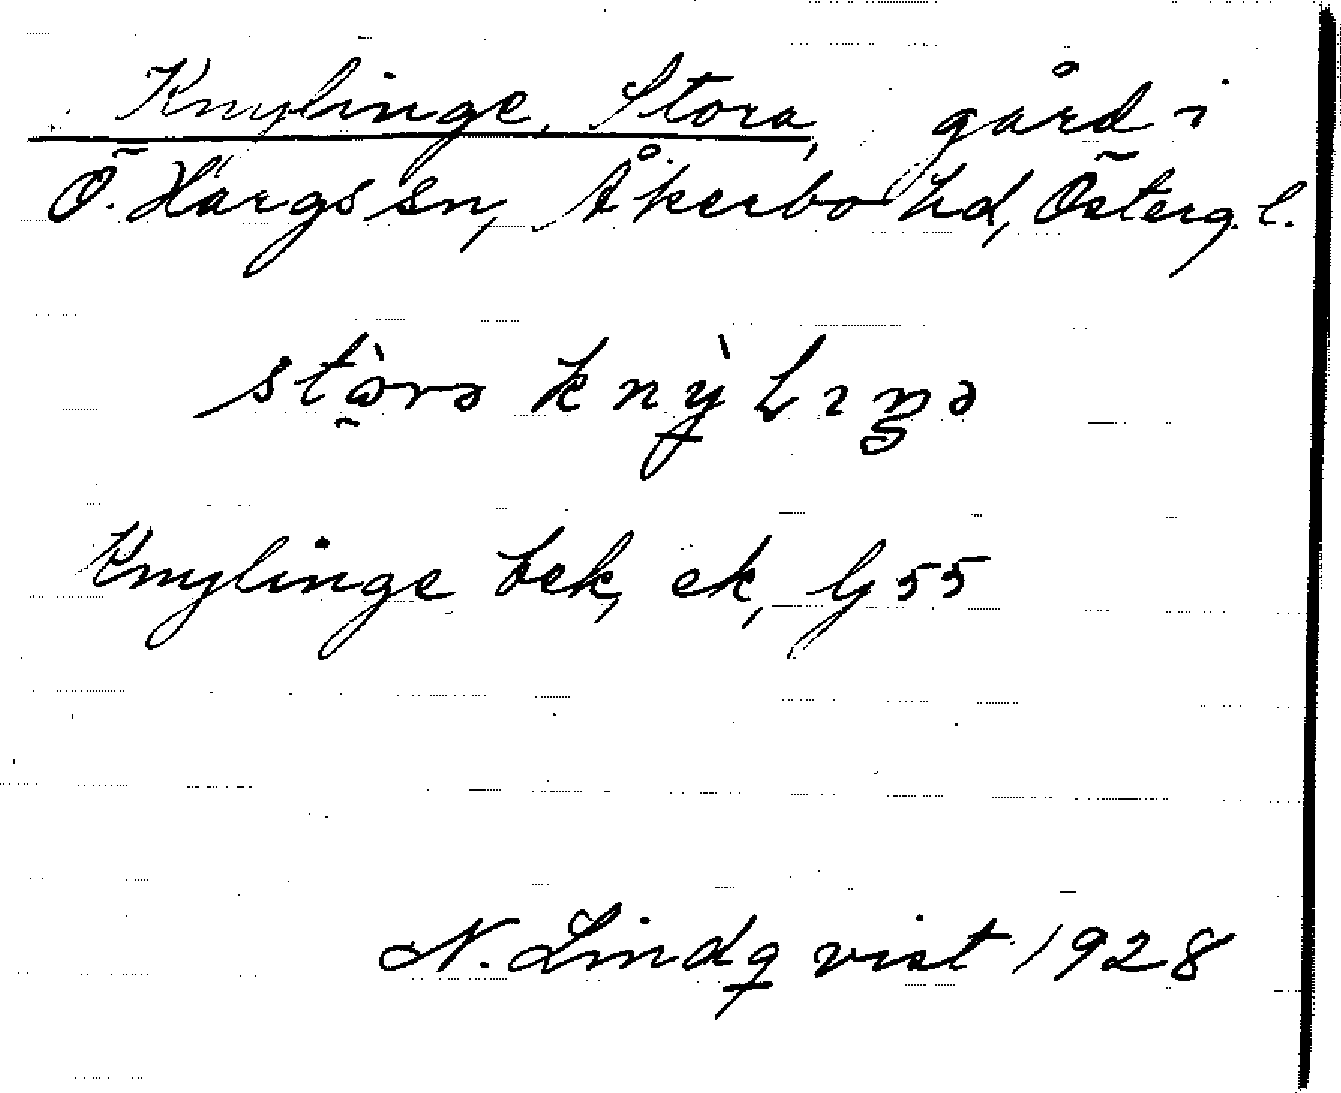 Knylinge, Stora, gård i
Ö. Hargs sn, Åkerbo hd, Österg. l.
stò̰rə knỳlɪŋə
Knylinge bek, ek, G 55
N. Lindqvist 1928